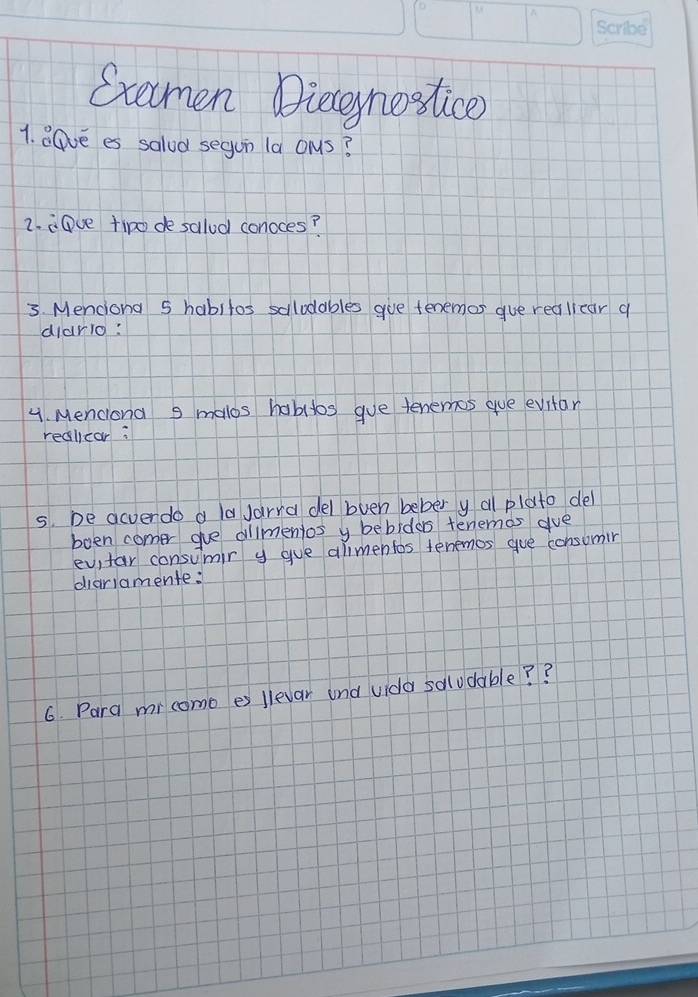 D M A Scribe
Examen Diagnostico
1. ¿Qué es salud segun la OMS?
2. ¿Que tipo de salud conoces?
3. Menciona 5 habitos saludables que tenemos que realicar a
diario:
4. Menciona 5 malos habitos que tenemos que evitar
realicar:
5. De acuerdo a la Jarra del buen beber y al plato del
buen comer que alimentos y bebidas tenemos que
evitar consumir y que alimentos tenemos que consumir
diariamente:
6. Para mi como es llevar una vida saludable??